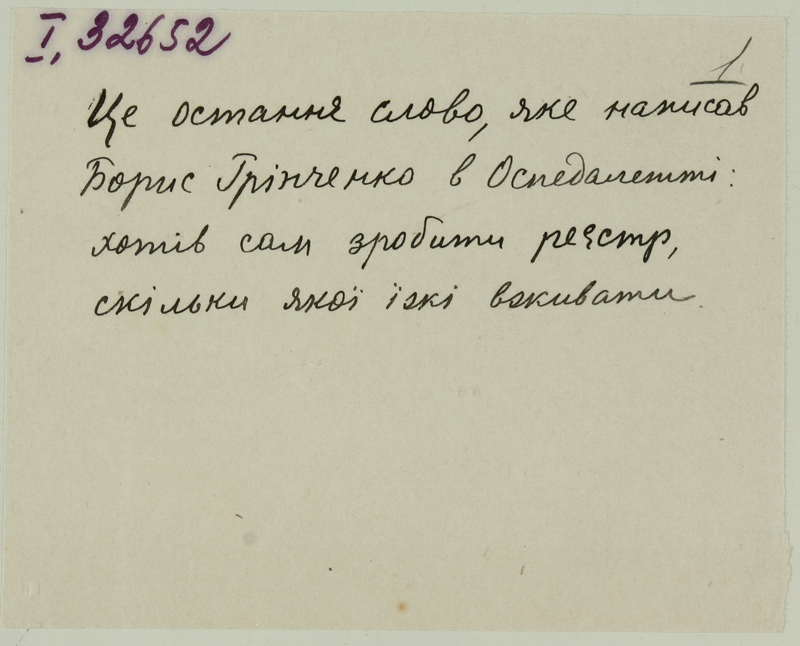 I, 32652
1
Це останнє слово, яке написав
Борис Грінченко в Оспедалетті:
хотів сам зробити реєстр,
скільки якої їжі вживати.